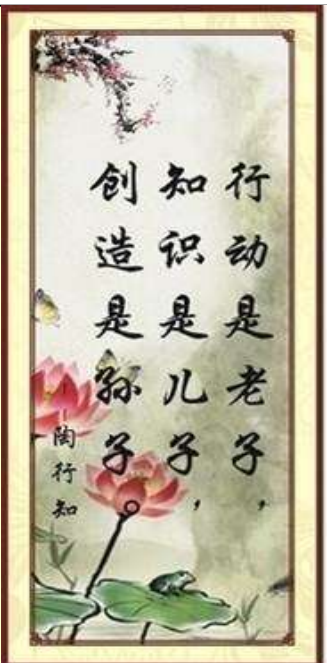 行动是老子，
知识是儿子，
创造是孙子。
—陶行知